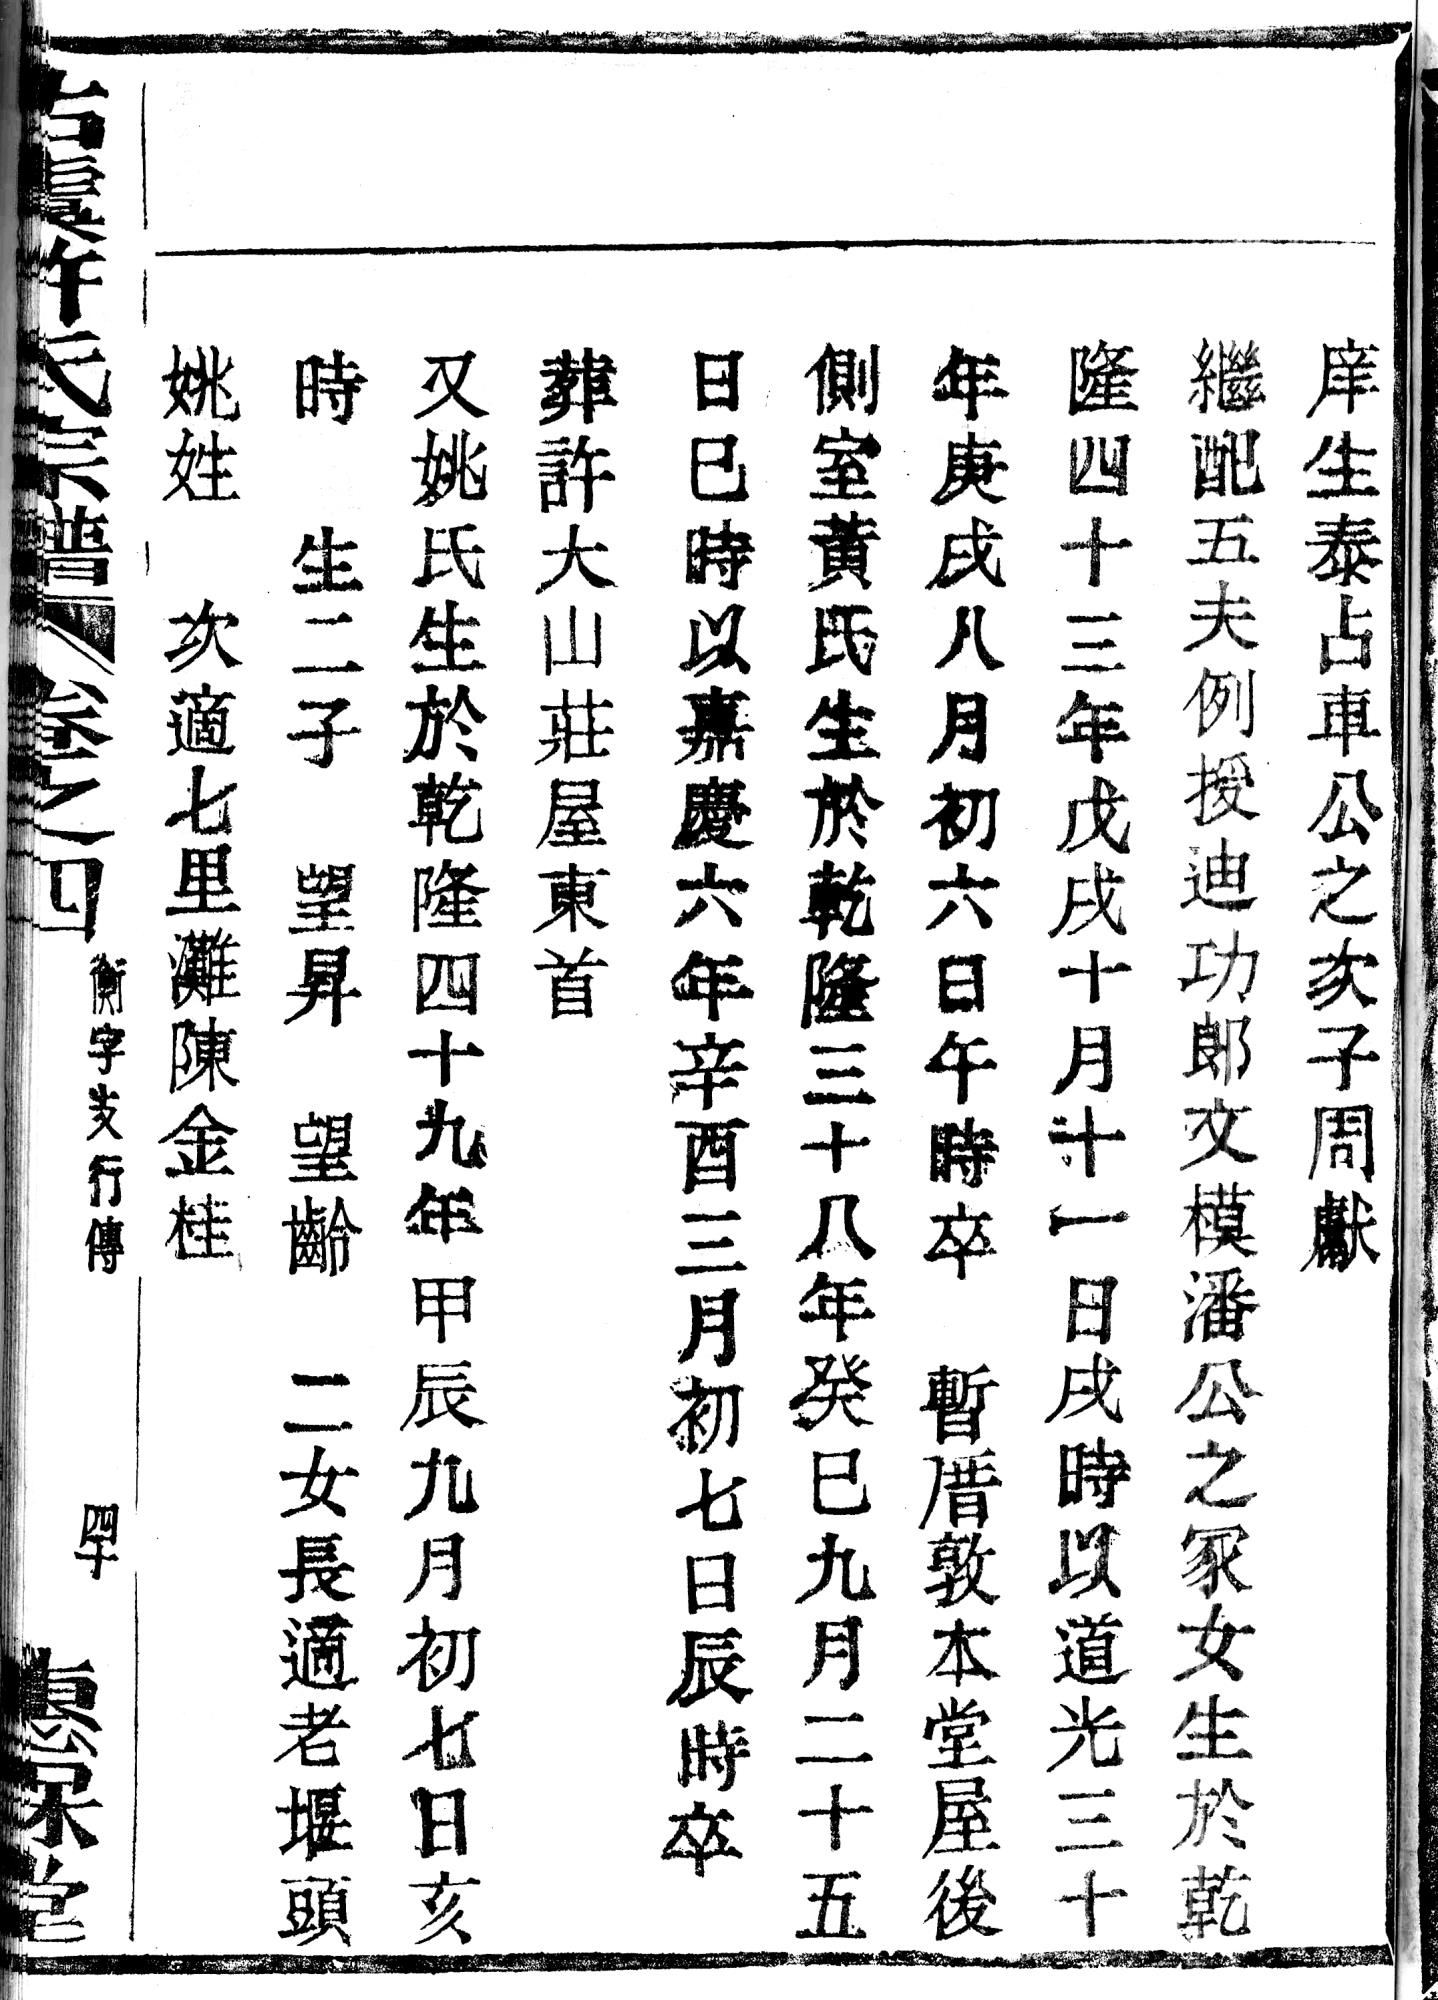 庠生泰占車公之次子周獻
繼配五夫例授迪功郎文模潘公之冢女生於乾
隆四十三年戊戌十月十一日戌時以道光三十
年庚戌八月初六日午時卒　暫厝敦本堂屋後
側室黃氏生於乾隆三十八年癸巳九月二十五
日巳時以嘉慶六年辛酉三月初七日辰時卒
葬許大山莊屋東首
又姚氏生於乾隆四十九年甲辰九月初七日亥
時　生二子　望昇　望齡　二女長適老堰頭
姚姓　次適七里灘陳金桂
古虞許氏宗譜　卷之四　衡字支行傳　四十